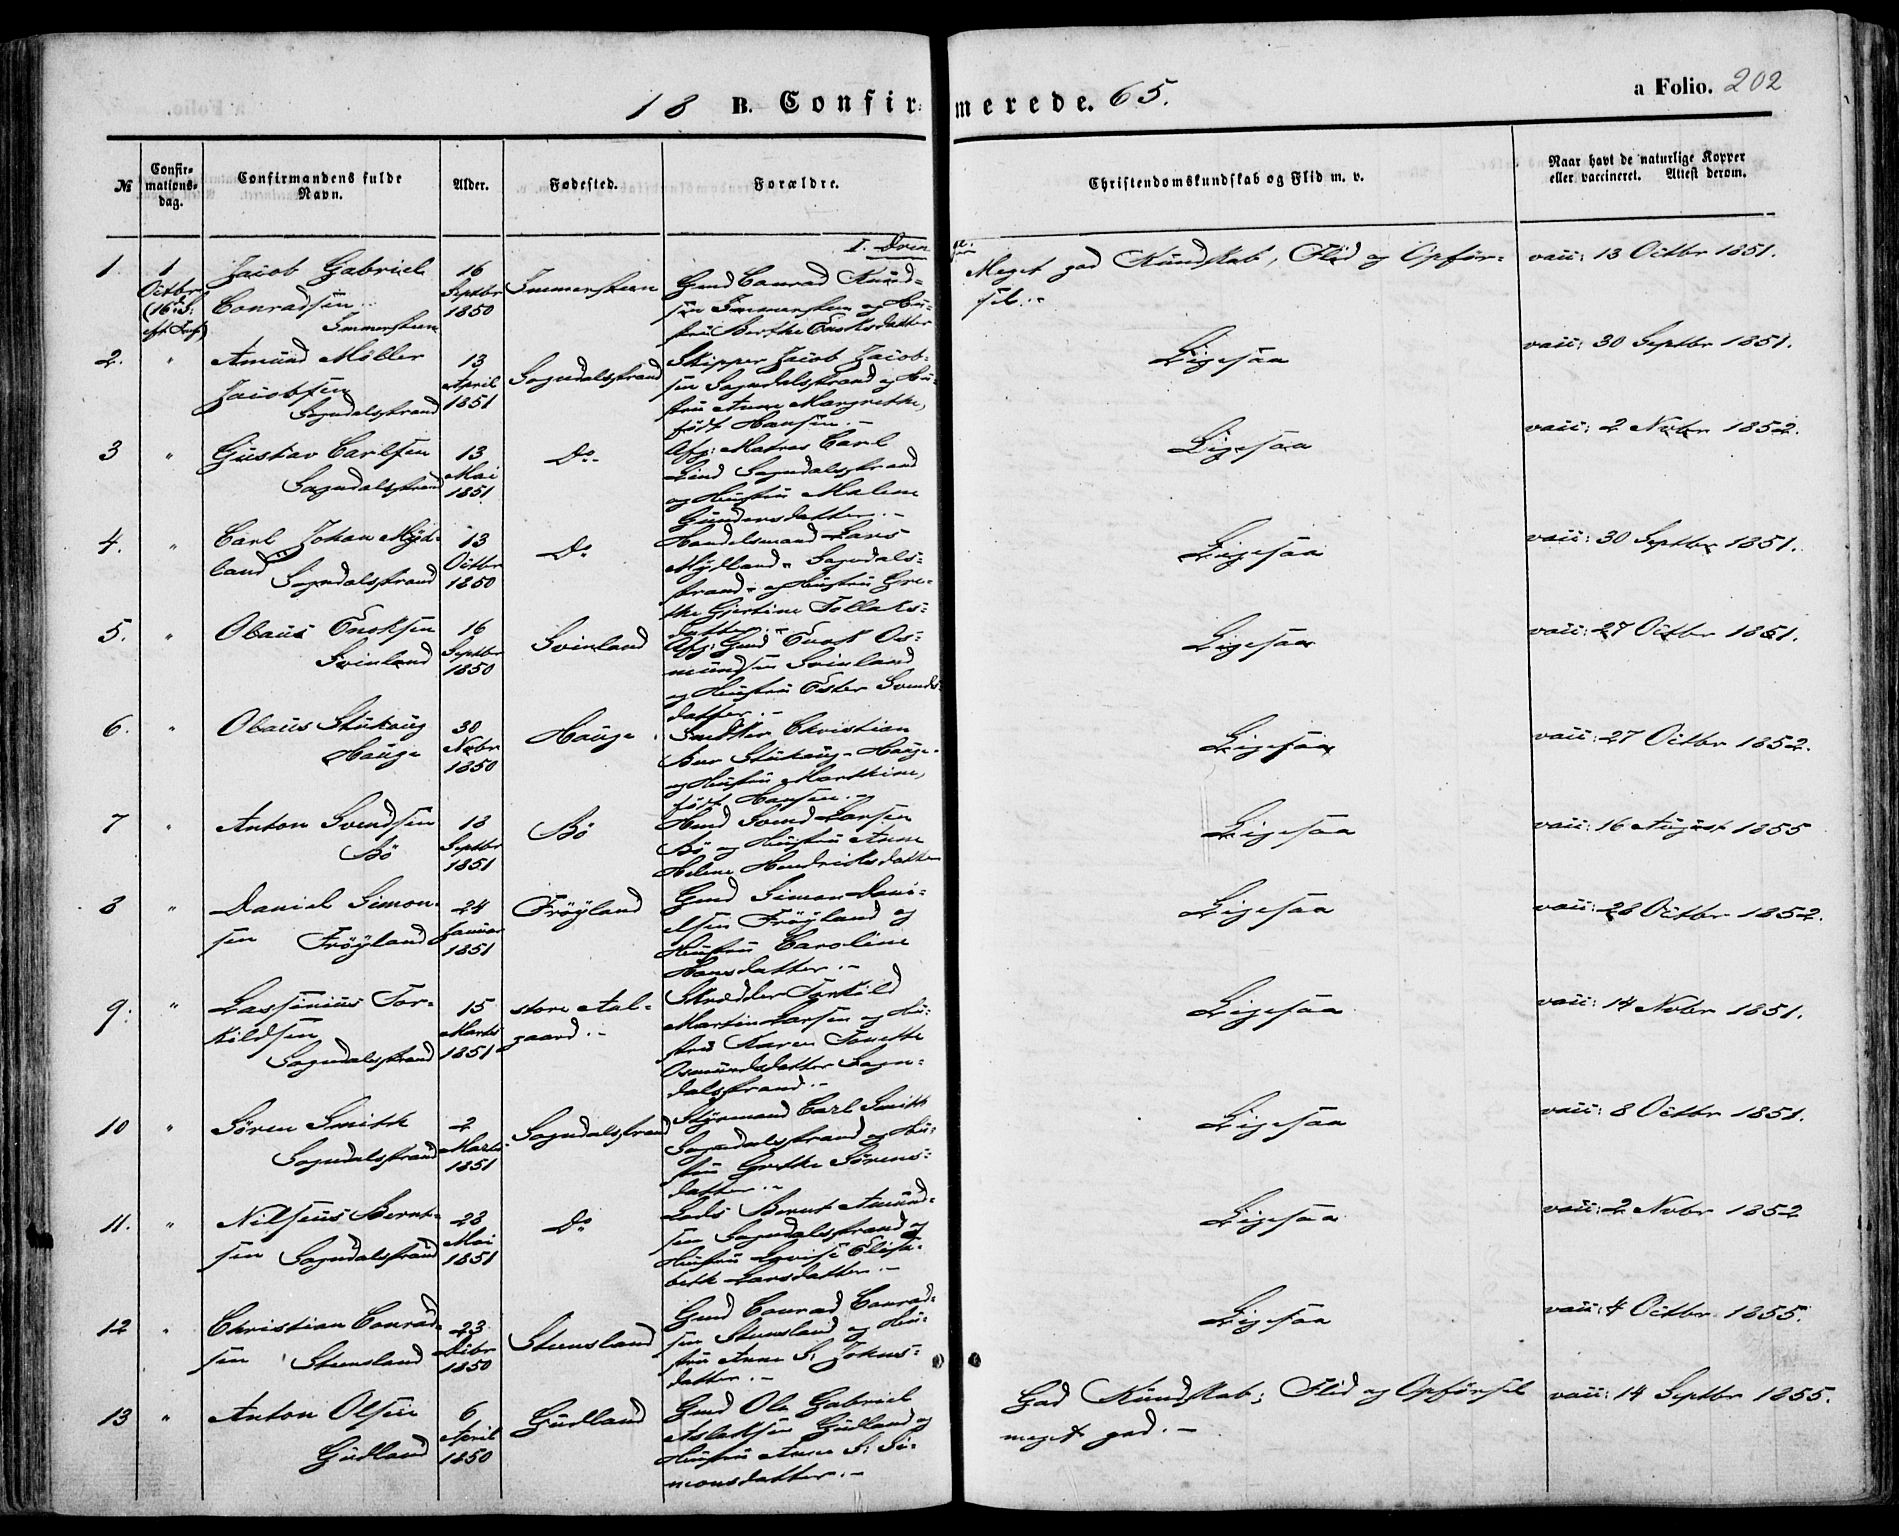 18 B. Confirmerede. 65.
a Folio. 202
№
Confir=
mations=
dag.
Confirmandens fulde
Navn.
Alder.
Fødested.
Forældre.
Christendomskundskab og Flid m. v.
Naar havt de naturlige Kopper
eller vaccineret. Attest derom.
I. Drenge.
1.
1
Octbr
(16 S:
eft Tref)
Jacob Gabriel
Conradsen
Immersteen
16
Septbr
1850
Immersteen
Gmd Conrad Knud=
sen Immersteen og Hu=
stru Berthe Enoksdatter
Meget god Kundskab, Flid og Opfør=
sel.-
vacc: 13 Octbr 1851.
2.
"
Amund Møller
Jacobsen
Sogndalsstrand
13
April
1851
Sogndalsstrand
Skipper Jacob Jacob=
sen Sogndalsstrand og Hu=
stru Anne Margrethe,
født Hansen.-
Ligesaa
vacc: 30 Septbr 1851.
3
"
Gustav Carlsen
Sogndalsstrand
13
Mai
1851
Do
Afg: Matros Carl
Lind Sogndalsstrand
og Hustru Malene
Gundersdatter.-
Ligesaa
vacc: 2 Novbr 1852.
4.
"
Carl Johan Myd=
land
Sogndalsstrand
13
Octbr
1850
Do
Handelsmand Lars
Mydland Sogndals=
strand og Hustru Gre=
the Gjertine Tollaks=
datter.-
Ligesaa
vacc: 30 Septbr 1851.
5.
"
Olaus Enoksen
Svinland
16
Septbr
1850
Svinland
Afg: Gmd Enok Os=
mundsen Svinland
og Hustru Ester Svends=
datter.-
Ligesaa
vacc: 27 Octbr 1851.
6.
"
Olaus Stuhaug
Hauge
30
Novbr
1850
Hauge
Snedker Christian
Stuhaug Hauge
og Hustru Marthine,
født Hansen.-
Ligesaa
vacc: 27 Octbr 1852.
7
"
Anton Svendsen
Bø
18
Septbr
1851
Bø
Hmd Svend Larsen
Bø og Hustru Anne
Helene Hendriksdatter
Ligesaa
vacc: 16 August 1855
8
"
Daniel Simon=
sen Frøyland
24
Januar
1851
Frøyland
Gmd Simon Dani=
elsen Frøyland og
Hustru Caroline
Hansdatter.-
Ligesaa
vacc: 28 Octbr 1852.
9.
"
Lassenius Tor=
kildsen
Sogndalsstrand
15
Marts
1851
store Aal=
gaard.-
Skrædder Torkild
Martin Larsen og Hu=
stru Karen Tonette
Osmundsdatter Sogn=
dalsstrand.-
Ligesaa
vacc: 14 Novbr 1851.
10
"
Søren Smith
Sogndalsstrand
2
Marts
1851
Sogndalsstrand
Styrmand Carl Smith
Sogndalsstrand og Hu=
stru Grethe Sørens=
datter.-
Ligesaa
vacc: 8 Octbr 1851.
11.
"
Nilsius Bernt=
sen Sogndalsstrand
28
Mai
1851
Do
Lods Bernt Amund=
sen Sogndalsstrand og
Hustru Lovise Elisa=
beth Larsdatter.-
Ligesaa
vacc: 2 Novbr 1852
12
"
Christian Conrad=
sen Steensland
23
Decbr
1850
Steensland
Gmd Conrad Conrad=
sen Steensland og Hu=
stru Anne S: Johns=
datter.-
Ligesaa
vacc: 4 Octbr 1855.
13
"
Anton Olsen
Gudland
6
April
1850
Gudland
Gmd Ole Gabriel
Aslaksen Gudland og
Hustru Anne S: Si=
monsdatter.-
God Kundskab; Flid og Opførsel
meget god.-
vacc: 14 Septbr 1855.